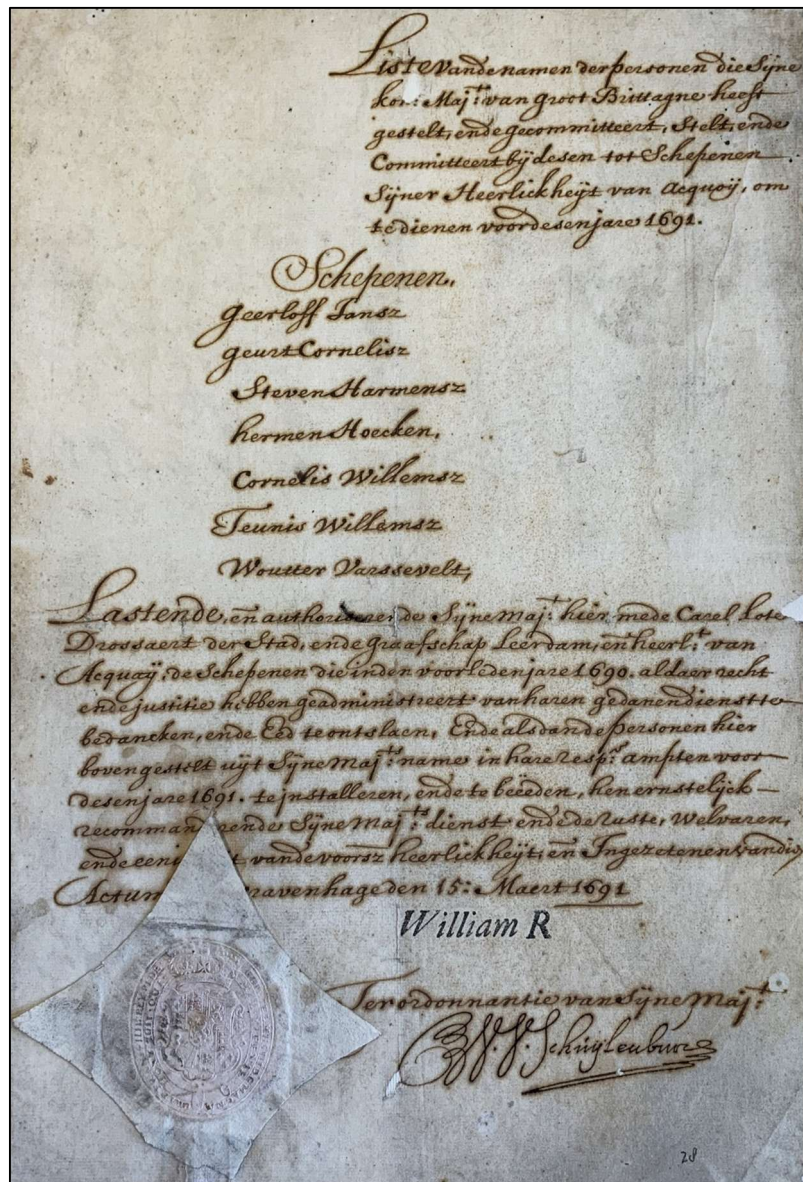 Liste vande namen der persoonen die Sÿne
kon: Maj:t van groot Brittagne heeft
gestelt, ende gecommitteert, Stelt, ende
Committeert bÿ desen tot Schepenen
Sÿner Heerlickheÿt van Acquoÿ, om
te dienen voor desen jare 1691.
Schepenen,
geerloff Jansz
geurt Cornelisz
Steven Harmensz
hermen Hoecken,
Cornelis Willemsz
Teunis Willemsz
Woutter Varssevelt,
Lastende, en̄ authoriserende Sÿne Maj:t hier mede Carel Lote
Drossaert der Stad, ende graafschap Leerdam, en̄ heerl:t van
Acquaÿ, de Schepenen die inden voorleden jare 1690. aldaer recht
ende justitie hebben geadministreert van haren gedanen dienst te
bedancken, ende Eed te ontslaen, Ende als dan de persoonen hier
boven gestelt uÿt Sÿne Maj:ts name in hare resp:e ampten voor
desen jare 1691. te installeren, ende te beëeden, hen ernstelÿck
recommanderende Sÿne Maj:ts dienst ende de ruste, Welvaren,
ende eeni t vande voorsz heerlickheÿt, en̄ Ingezetenen van die
Actum ravenhage den 15: Maert 1691
William R
Ter ordonnantie van Sÿne Maj:t
W. V. Schuÿlenburg
28